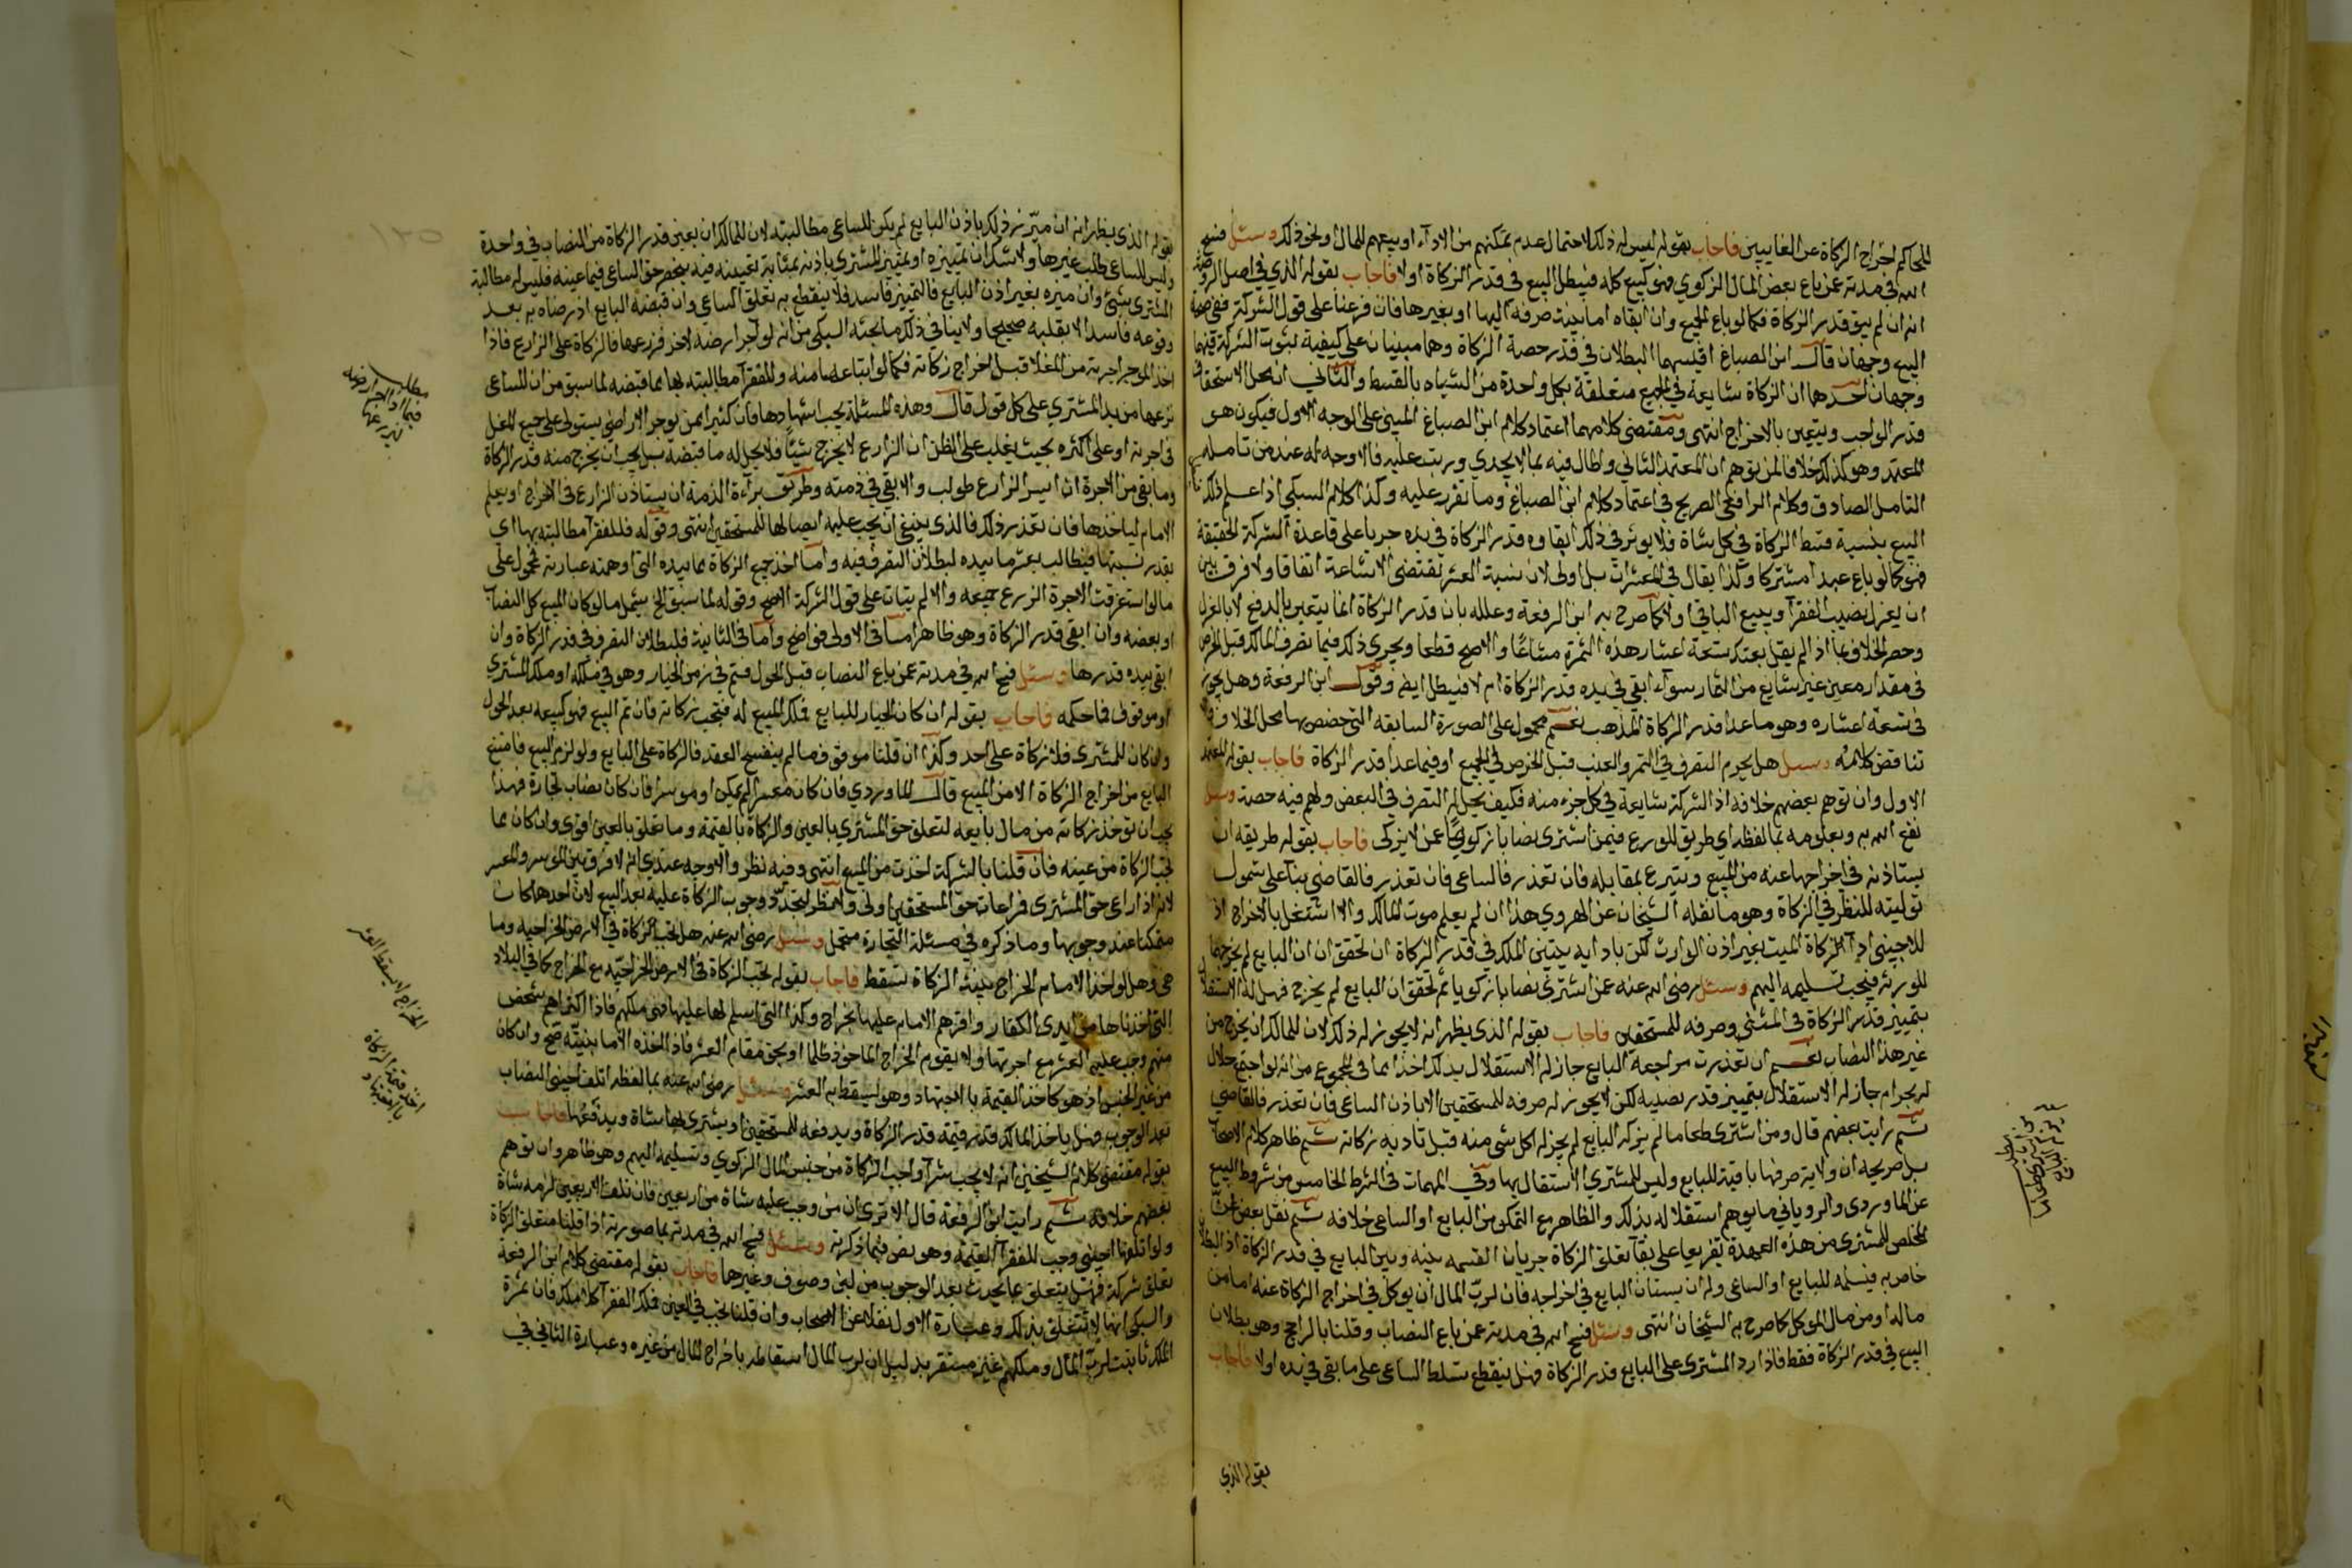 للحاكم اخراج الزكاة عن الغايبين فاجاب بقوله ليس له ذلك لاحتمال عدم تمكنهم من الاداء او بيعهم للمال ونحو ذلك وسئل فسح
الله في مدته عمن باع بعض المال الزكوي فهو كبيع كله فيبطل البيع في قدر الزكاة اولا فاجاب بقوله الذي في اصل الروضة
انه ان لم يبق قدر الزكاة فكما لو باع الجميع وان ابقاه اما بنية صرفه اليها او بغيرها فان فرعنا على قول الشركة ففي صحة
البيع وجهان قال ابن الصباغ اقيسهما البطلان في قدر حصة الزكاة وهما مبنيان على كيفية ثبوت الشركة فيها
وجهان احدهما ان الزكاة شايعة في الجميع متعلقة بكل واحدة من الشياه بالقسط والثاني ان محل الاستحقاق
قدر الواجب ويتعين بالاخراج انتهى ومقتضى كلامهما اعتماد كلام ابن الصباغ المبني على الوجه الاول فيكون هو
المعتمد وهو كذلك خلافا لمن توهم ان المعتمد الثاني واطال فيه بما لا يجدي ورتب عليه فالاوجه له عند من تامله
التامل الصادق وكلام الرافعي الصريح في اعتماد كلام ابن الصباغ وما تقرر عليه وكذا كلام السبكي اذا علم ذلك
البيع بنسبة قسط الزكاة في كل شاة فلا يوثر في ذلك ابقاوه قدر الزكاة في يده جريا على قاعدة الشركة الحقيقة
فهو كما لو باع عبدا مشتركا وكذا يقال في المعشرات بل اولى لان نسبة العشر تقتضي الاشاعة اتفاقا ولا فرق بين
ان يعزل نصيب الفقرآ ويبيع الباقي اولا كما صرح به ابن الرفعة وعلله بان قدر الزكاة انما يتعين بالدفع لا بالعزل
وحصر الخلاف بما اذا لم يقل بعتك تسعة اعشار هذه الثمرة مشاعًا والا صح قطعا ويجري ذلك فيما تصرف المالك قبل الخرص
في مقدار معين غير شايع من الثمار سواء ابقي في يده قدر الزكاة ام لا فيبطل ايضا وقول ابن الرفعة وهل يجوز
في تسعة اعشاره وهو ما عدا قدر الزكاة المذهب نعم محمول على الصورة السابقه التي خصص بها محل الخلاف
تناقض كلامه وسئل هل يحرم التصرف في التمر والعنب قبل الخرص في الجميع او فيما عدا قدر الزكاة فاجاب بقوله المعتمد
الاول وان توهم بعضهم خلافه اذ الشركة شايعة في كل جزء منه فكيف يحل له التصرف في البعض ولهم فيه حصة وسئل
نفع الله به وبعلومه بما لفظه اي طريق للورع فيمن اشترى نصابا زكويًّا عمن لا يزكي فاجاب بقوله طريقه ان
يستاذنه في اخراجها عنه من المبيع ويتبرع بمقابله فان تعذر فالساعي فان تعذر فالقاضي بنآ على شمول
توليته للنظر في الزكاة وهو ما نقله الشيخان عن الهروي هذا ان لم يعلم موت المالك والا اشتغل بالاخراج اذ
للاجنبي ادآ الزكاة الميت بغير اذن الوارث لكن بادايه يتبين الملك في قدر الزكاة ان تحقق ان البايع لم يخرجها
للورثه فيجب تسليمه اليهم وسئل رضي الله عنه عمن اشترى نصابا زكويا ثم تحقق ان البايع لم يخرج فهل له الاستقلال
بتمييز قدر الزكاة في المثلي وصرفه للمستحقين فاجاب بقوله الذي يظهر انه لا يجوز له ذلك لان للمالك ان يخرج من
غير هذا النصاب نعم ان تعذرت مراجعة البايع جاز له الاستقلال بذلك اخذا مما في المجموع من انه لو اجتمع حلال
له بحرام جاز له الاستقلال بتمييز قدر نصيبه لكن لا يجوز له صرفه للمستحقين الا باذن الساعي فان تعذر فالقاضي
ثم رايت بعضهم قال ومن اشترى طعاما لم يزكه البايع لم يجز له اكل شي منه قبل تاديه زكاته ثم ظاهر كلام الاصحاب
بل صريحه ان ولاية صرفها باقية للبايع وليس للمشتري الاستقال بها وفي المهمات في الشرط الخامس من شروط البيع
عن الماوردي والروياني ما يوهم استقلاله بذلك والظاهر مع التمكن من البايع او الساعي خلافه ثم نقل بعض
المخلص للمشتري من هذه العهدة تفريعا على بقآ تعلق الزكاة جريان القسمه بينه وبين البايع في قدر الزكاة
خاص به فيسلمه للبايع او الساعي وله ان يستاذن البايع في اخراجه فان لربّ المال ان يوكل في اخراج الزكاة عنه اما من
ماله او من مال الموكل كما صرح به الشيخان انتهى وسئل فسح الله في مدته عمن باع النصاب وقلنا بالراجح وهو بطلان
البيع في قدر الزكاة فقط فاذا رد المشتري على البايع قدر الزكاة فهل ينقطع تسلط الساعي على ما بقي في يده اولا فاجاب
بقوله الذي
بقوله الذي يظهر انه ان ميّز ذلك باذن البايع لم يكن للساعي مطالبته لان للمالك ان يعين قدر الزكاة من النصاب في واحدة
وليس للساعي طلب غيرها ولا شك ان تمييزه او تمييز المشتري باذنه بمثابة تعيينه فيه ينحصر حق الساعي فيما عينه فليس له مطالبة
المشتري بشئ وان ميزه بغير اذن البايع فالتمييز فاسد فلا ينقطع به تعلق الساعي وان قبضه البايع اذ رضاه به بعد
وقوعه فاسدا لا يقلبه صحيحا ولا ينافي ذلك ما بحثه السبكي من انه لو آجر ارضه لاخر فزرعها فالزكاة على الزارع فاذا
اخذ الموجر اجرته من المغل قبل اخراج زكاته فكما لو ابتاعها منه وللفقرآ مطالبته بها بما قبضه لما سبق من ان للساعي
نزعها من يد المشتري على كل قول قال وهذه المسئلة يجب اشهارها فان كثيرا ممن يوجر الاراضي يستولي على جميع المغل
في اجرته او على اكثره بحيث يغلب على الظن ان الزارع لا يخرج شيئًا فلا يحل له ما قبضه بل يجب ان يخرج منه قدر الزكاة
وما بقي من الاجرة ان ايسر الزارع طولب والا بقي في ذمته وطريق برآءة الذمة ان يستاذن الزارع في الاخراج او يعلم
الامام لياخذها فان تعذر ذلك فالذي ينبغي ان يجب عليه ايصالها للمستحقين انتهى وقوله فللفقرآ مطالبته بها اي
بقدر نسبتها فيطالب بعشر ما بيده لبطلان التصرف فيه واما اخذ جميع الزكاة مما بيده التي اوهمته عبارته فمحمول على
ما لو استغرقت الاجرة الزرع جميعه والا لم يتات على قول الشركة الاصح وقوله لما سبق الخ يشمل ما لو كان المبيع كل النصاب
او بعضه وان ابقى قدر الزكاة وهو ظاهر اما في الاولى فواضح واما في الثانية فلبطلان التصرف في قدر الزكاة وان
ابقى بيده قدرها وسئل فسح الله في مدته عمن باع النصاب قبل الحول فتم في زمن الخيار وهو في ملكه او ملك المشتري
او موقوف فما حكمه فاجاب بقوله ان كان الخيار للبايع فملك المبيع له فتجب زكاته فان تم البيع فهو كبيعه بعد الحول
وان كان للمشتري فلا زكاة على احد وكذا ان قلنا موقوف ما لم ينفسخ العقد فالزكاة على البايع ولو لزم البيع فامتنع
البايع من اخراج الزكاة الا من المبيع قال الماوردي فان كان معسرا لم يمكن او موسرا فان كان نصاب تجارة فهذا
يجب ان توخذ زكاته من مال بايعه لتعلق حق المشتري بالعين والزكاة بالقيمة وما تعلق بالعين اقوى وان كان مما
تجب الزكاة من عينه فان قلنا بالشركة اخذت من المبيع انتهى وفيه نظر والاوجه عندي انه لا فرق بين الموسر والمعسر
لانه اذا راعى حق المشتري فمراعات حق المستحقين اولى ولانظر لتجدّد وجوب الزكاة عليه بعد البيع لان احدهما كان
متمكنا عند وجوبها وما ذكره في مسئلة التجارة محتمل وسئل رضي الله عنه هل تجب الزكاة في الارض الخراجيه وما
هي وهل لو اخذ الامام الخراج بنية الزكاة تسقط فاجاب بقوله تجب الزكاة في الارض الخراجيّه مع الخراج كما في البلاد
التي اخذناها من ايدي الكفار واقرهم الامام عليها بخراج وكذا التي اسلم اهلها عليها فهي ملكهم فاذا اكتراها شخص
منهم وجب عليه العشر مع اجرتها ولا يقوم الخراج الماخوذ ظلما او بحق مقام العشر فاذا اخذه الامام بنيته صح وان كان
من غير الجنس اذ هو كاخذ القيمة بالاجتهاد وهو يسقط به العشر وسئل رضي الله عنه بما لفظه اتلف اجنبي النصاب
بعد الوجوب فهل ياخذ المالك قدر قيمة قدر الزكاة ويدفعه للمستحقين او يشتري بها شاة ويدفعها فاجاب
بقوله مقتضى كلام الشيخين انه لا يجب شرآ واجب الزكاة من جنس المال الزكوي وتسليمه اليهم وهو ظاهر وان توهم
بعضهم خلافه ثم رايت ابن الرفعة قال الا ترى ان من وجب عليه شاة من اربعين فان تلفت الاربعين لزمه شاة
ولو اتلفها اجنبي وجب للفقرآ القيمة وهو نص فيما ذكرته وسئل فسح الله في مدته بما صورته اذا قلنا متعلق الزكاة
تعلق شركة فهل يتعلق بما يحدث بعد الوجوب من لبن وصوف وغيرها فاجاب بقوله مقتضى كلام ابن الرفعة
والسبكي انها لا تتعلق بذلك وعبارة الاول نقلا عن الاصحاب وان قلنا تجب في العين فملك الفقرآ كلا ملك فان ثمرة
الملك ثابتة لربّ المال وملكهم غير مستقر بدليل ان لرب المال اسقاطه باخراج المال من غيره وعبارة الثاني في